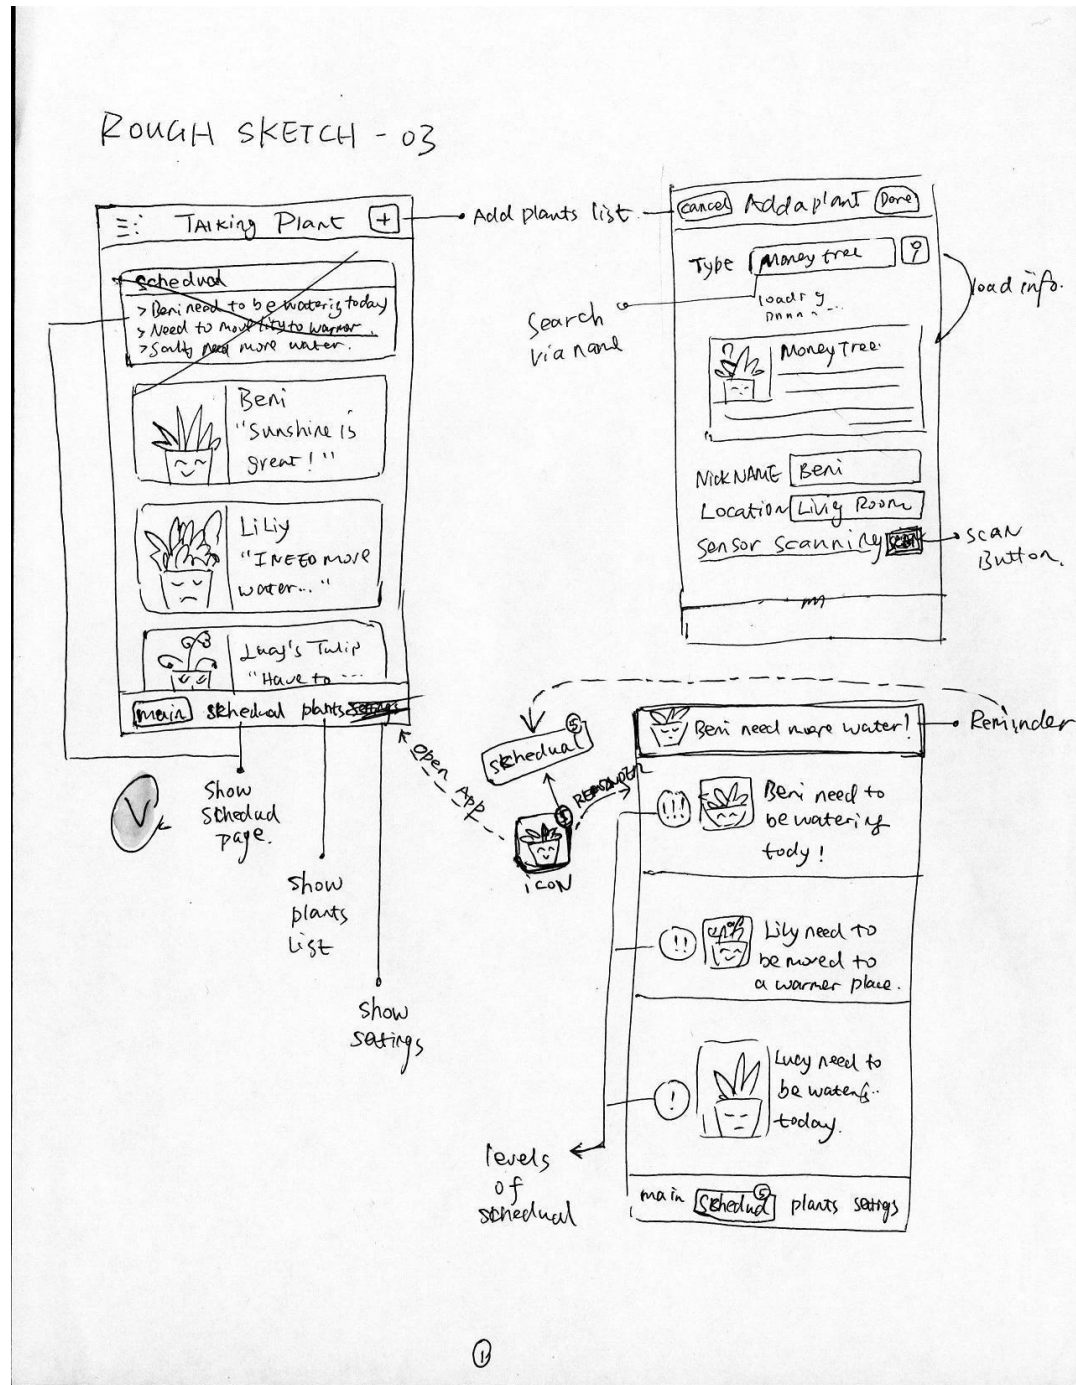 ROUGH SKETCH - 03
TALKING Plant +
schedual
> Beni need to be waterig today
> Need to move lily to warmer
> Sally need more water.
Beni
"Sunshine is
great! "
LiLiy
"I NEED more
water... "
Lucy's Tulip
"Have to ...
main skhedual plants settings
V
Show
schedual
page.
show
plants
list
show
settings
Add plants list
Cancel Add a plant Done
Type Money tree
loadig
load info.
Search
via name
Money Tree
NickNAME Beni
Location Livig Room
Sensor scanning SCAN
SCAN
Button.
Open App
skhedual 5
5
REMINDER
iCON
Beni need more water!
Reminder
!!! Beni need to
be watering
tody !
!! Lily need to
be moved to
a warmer place.
! Lucy need to
be waterig..
today.
levels
of
schedual
main Skhedual 5 plants settigs
1